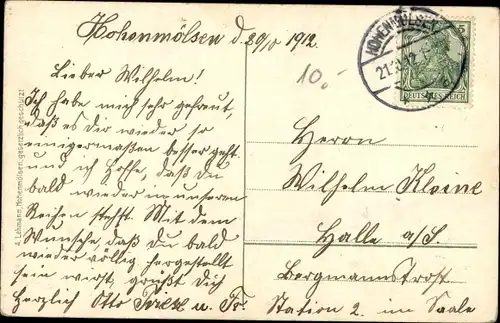 Hohenmölsen d. 20/5 1912.
10.-
HOHENMÖLSEN
21.
DEUTSCHES REICH
5
Lieber Wilhelm!
Ich habe mich sehr gefreut,
daß es dir wieder so
einigermaßen besser geht.
und ich hoffe, daß du
bald wieder in unseren
Reihen stehst. Mit dem
Wunsche, daß Du bald
wieder völlig hergestellt
sein wirst, grüßt Dich
Herzlich Otto u. Fr.
Herrn
Wilhelm Kleine
Halle a/S.
Bergmannstrost
Station 2. im Saale
A. Lehmann, Hohenmölsen, gesetzlich geschützt